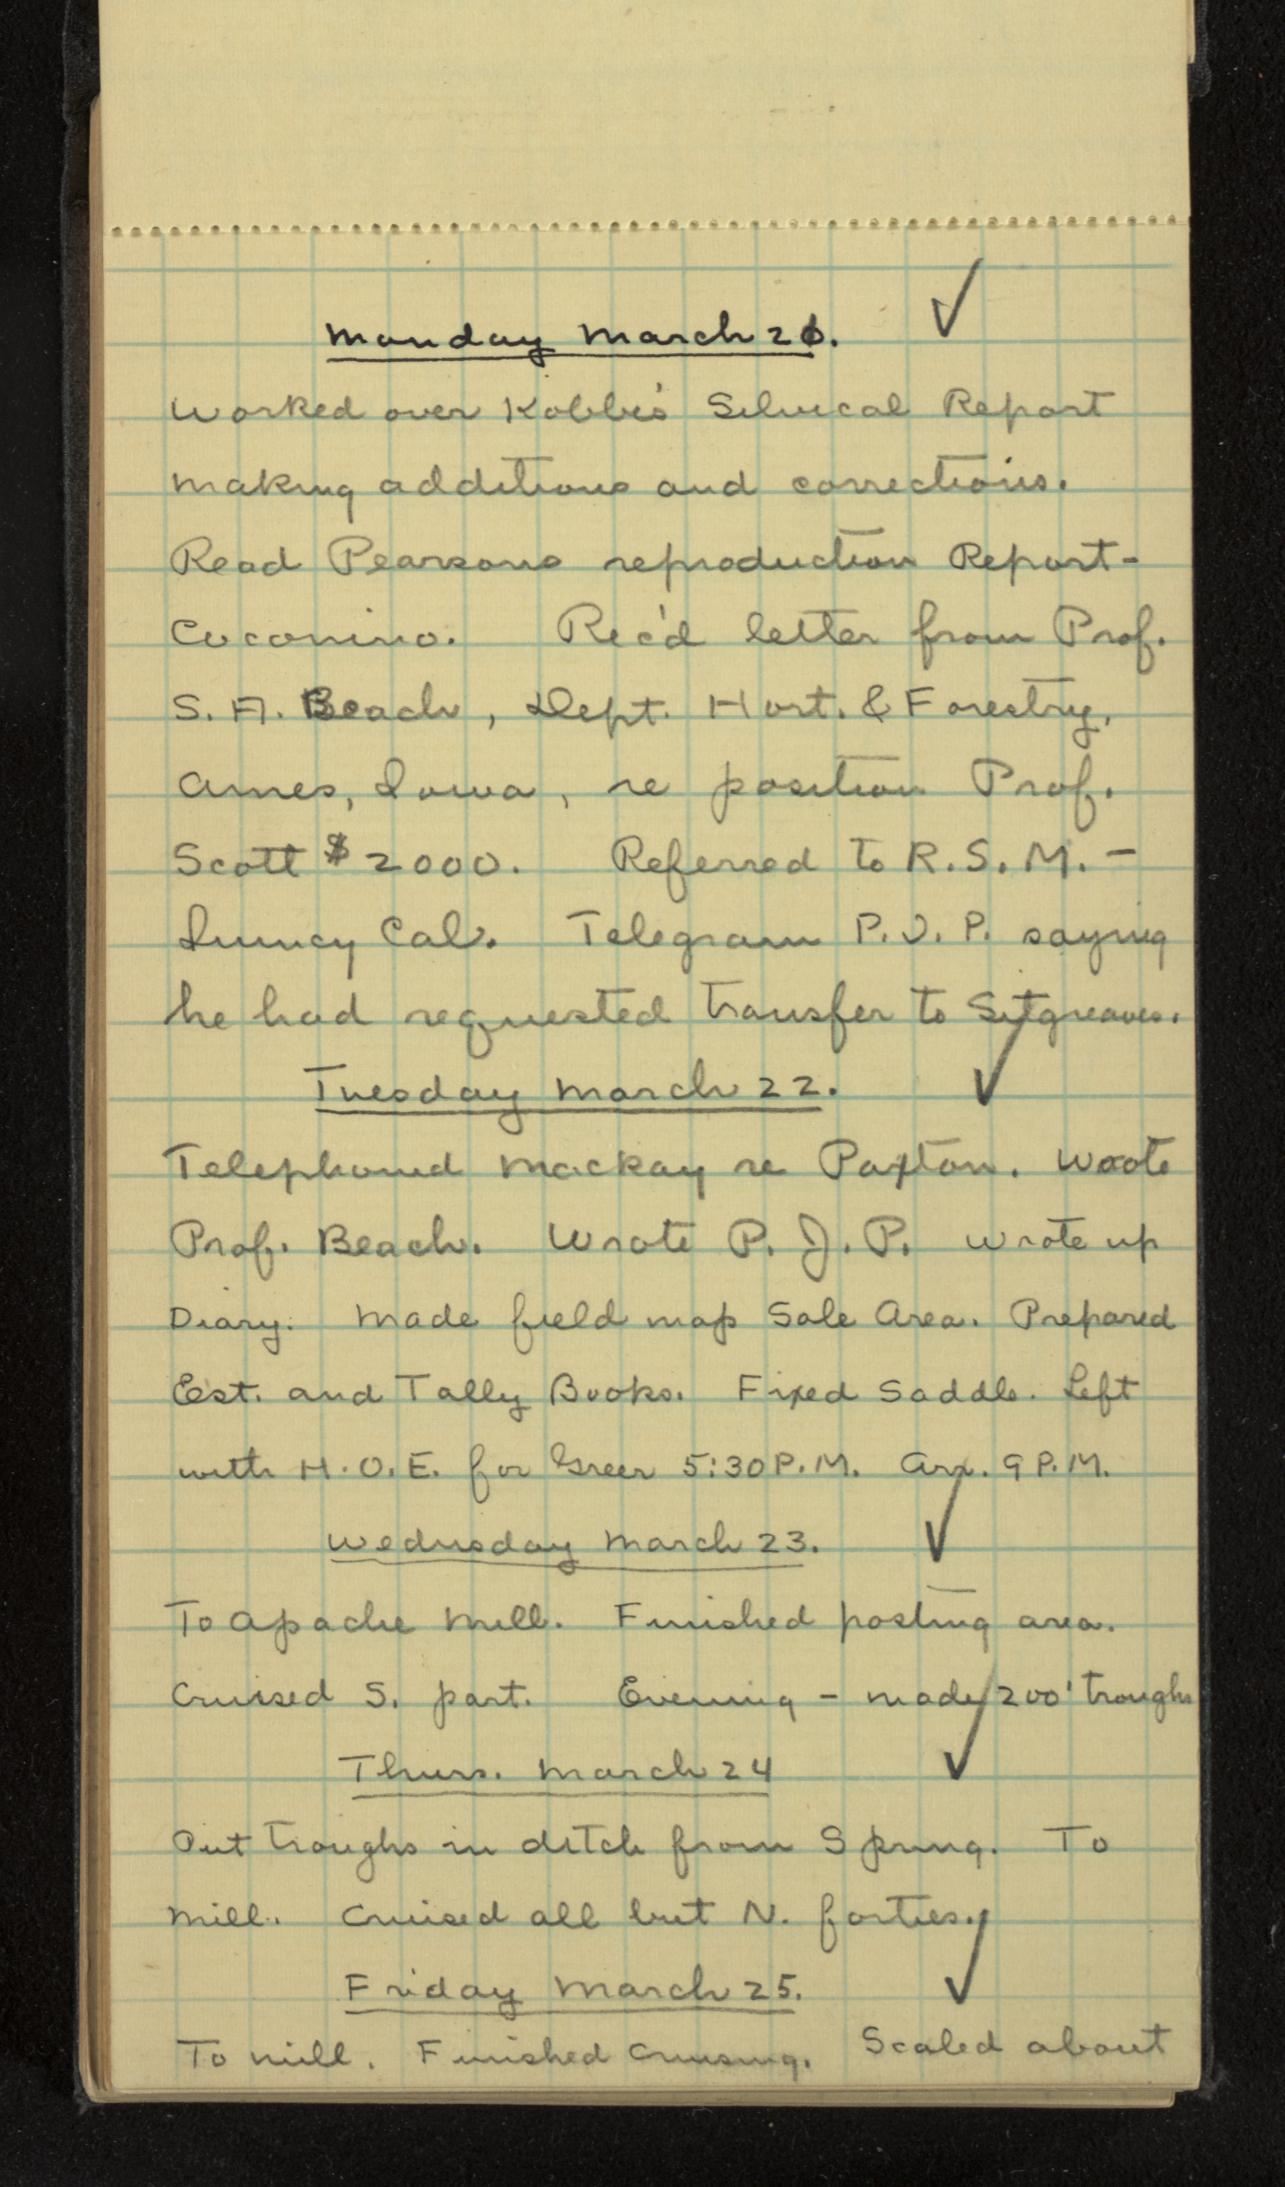 Monday March 21.
Worked over Kobbe's Silvical Report
making additions and corrections.
Read Pearsons reproduction Report-
Coconino. Rec'd letter from Prof.
S. A. Beach, Dept. Hort. & Forestry,
Ames, Iowa, re position Prof.
Scott $2000. Referred to R.S.M. -
Quincy Cal. Telegram P.J.P. saying
he had requested transfer to Sitgreaves.
Tuesday March 22.
Telephoned Mackay re Paxton. Wrote
Prof. Beach. Wrote P.J.P. Wrote up
Diary. Made field map Sale Area. Prepared
Est. and Tally Books. Fixed Saddle. Left
with H.O.E. for Greer 5:30 P.M. Arr. 9 P.M.
Wednsday March 23.
To Apache Mill. Finished posting area.
Cruised S. part. Evening - made 200' troughs
Thurs. March 24
Put troughs in ditch from Spring. To
Mill. Cruised all but N. forties.
Friday March 25.
To mill. Finished cruising. Scaled about